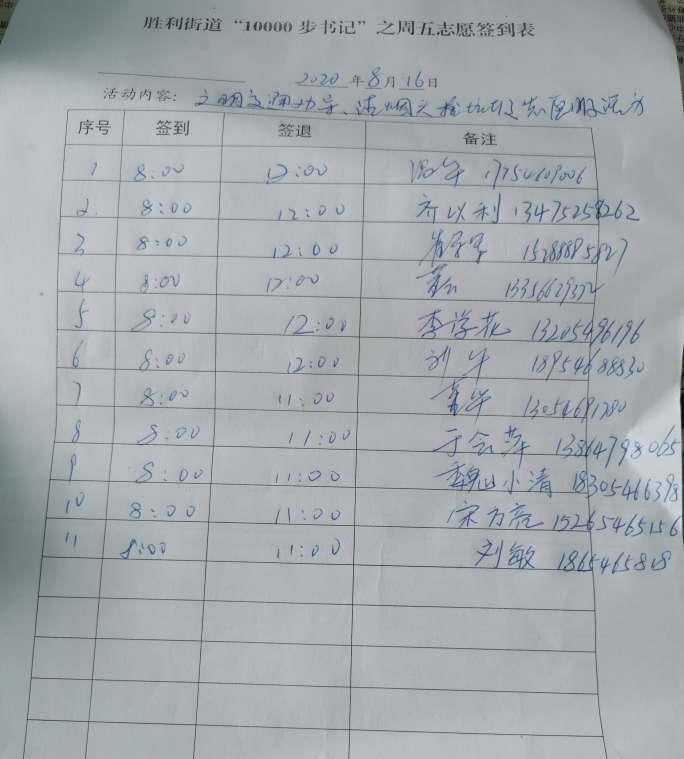 胜利街道“10000步书记”之周五志愿签到表
2020年8月16日
活动内容：文明交通劝导、
序号 签到 签退 备注
1 8:00 12:00
2 8:00 12:00 齐以利 13475258262
3 8:00 12:00 15288895827
4 8:00 12:00
5 8:00 12:00 李学花 13205496196
6 8:00 12:00 刘华 18954688830
7 8:00 11:00 13054691780
8 8:00 11:00 于会萍 13864798065
9 8:00 11:00 魏小清 18305466398
10 8:00 11:00 宋万亮 15265465156
11 8:00 11:00 刘敏